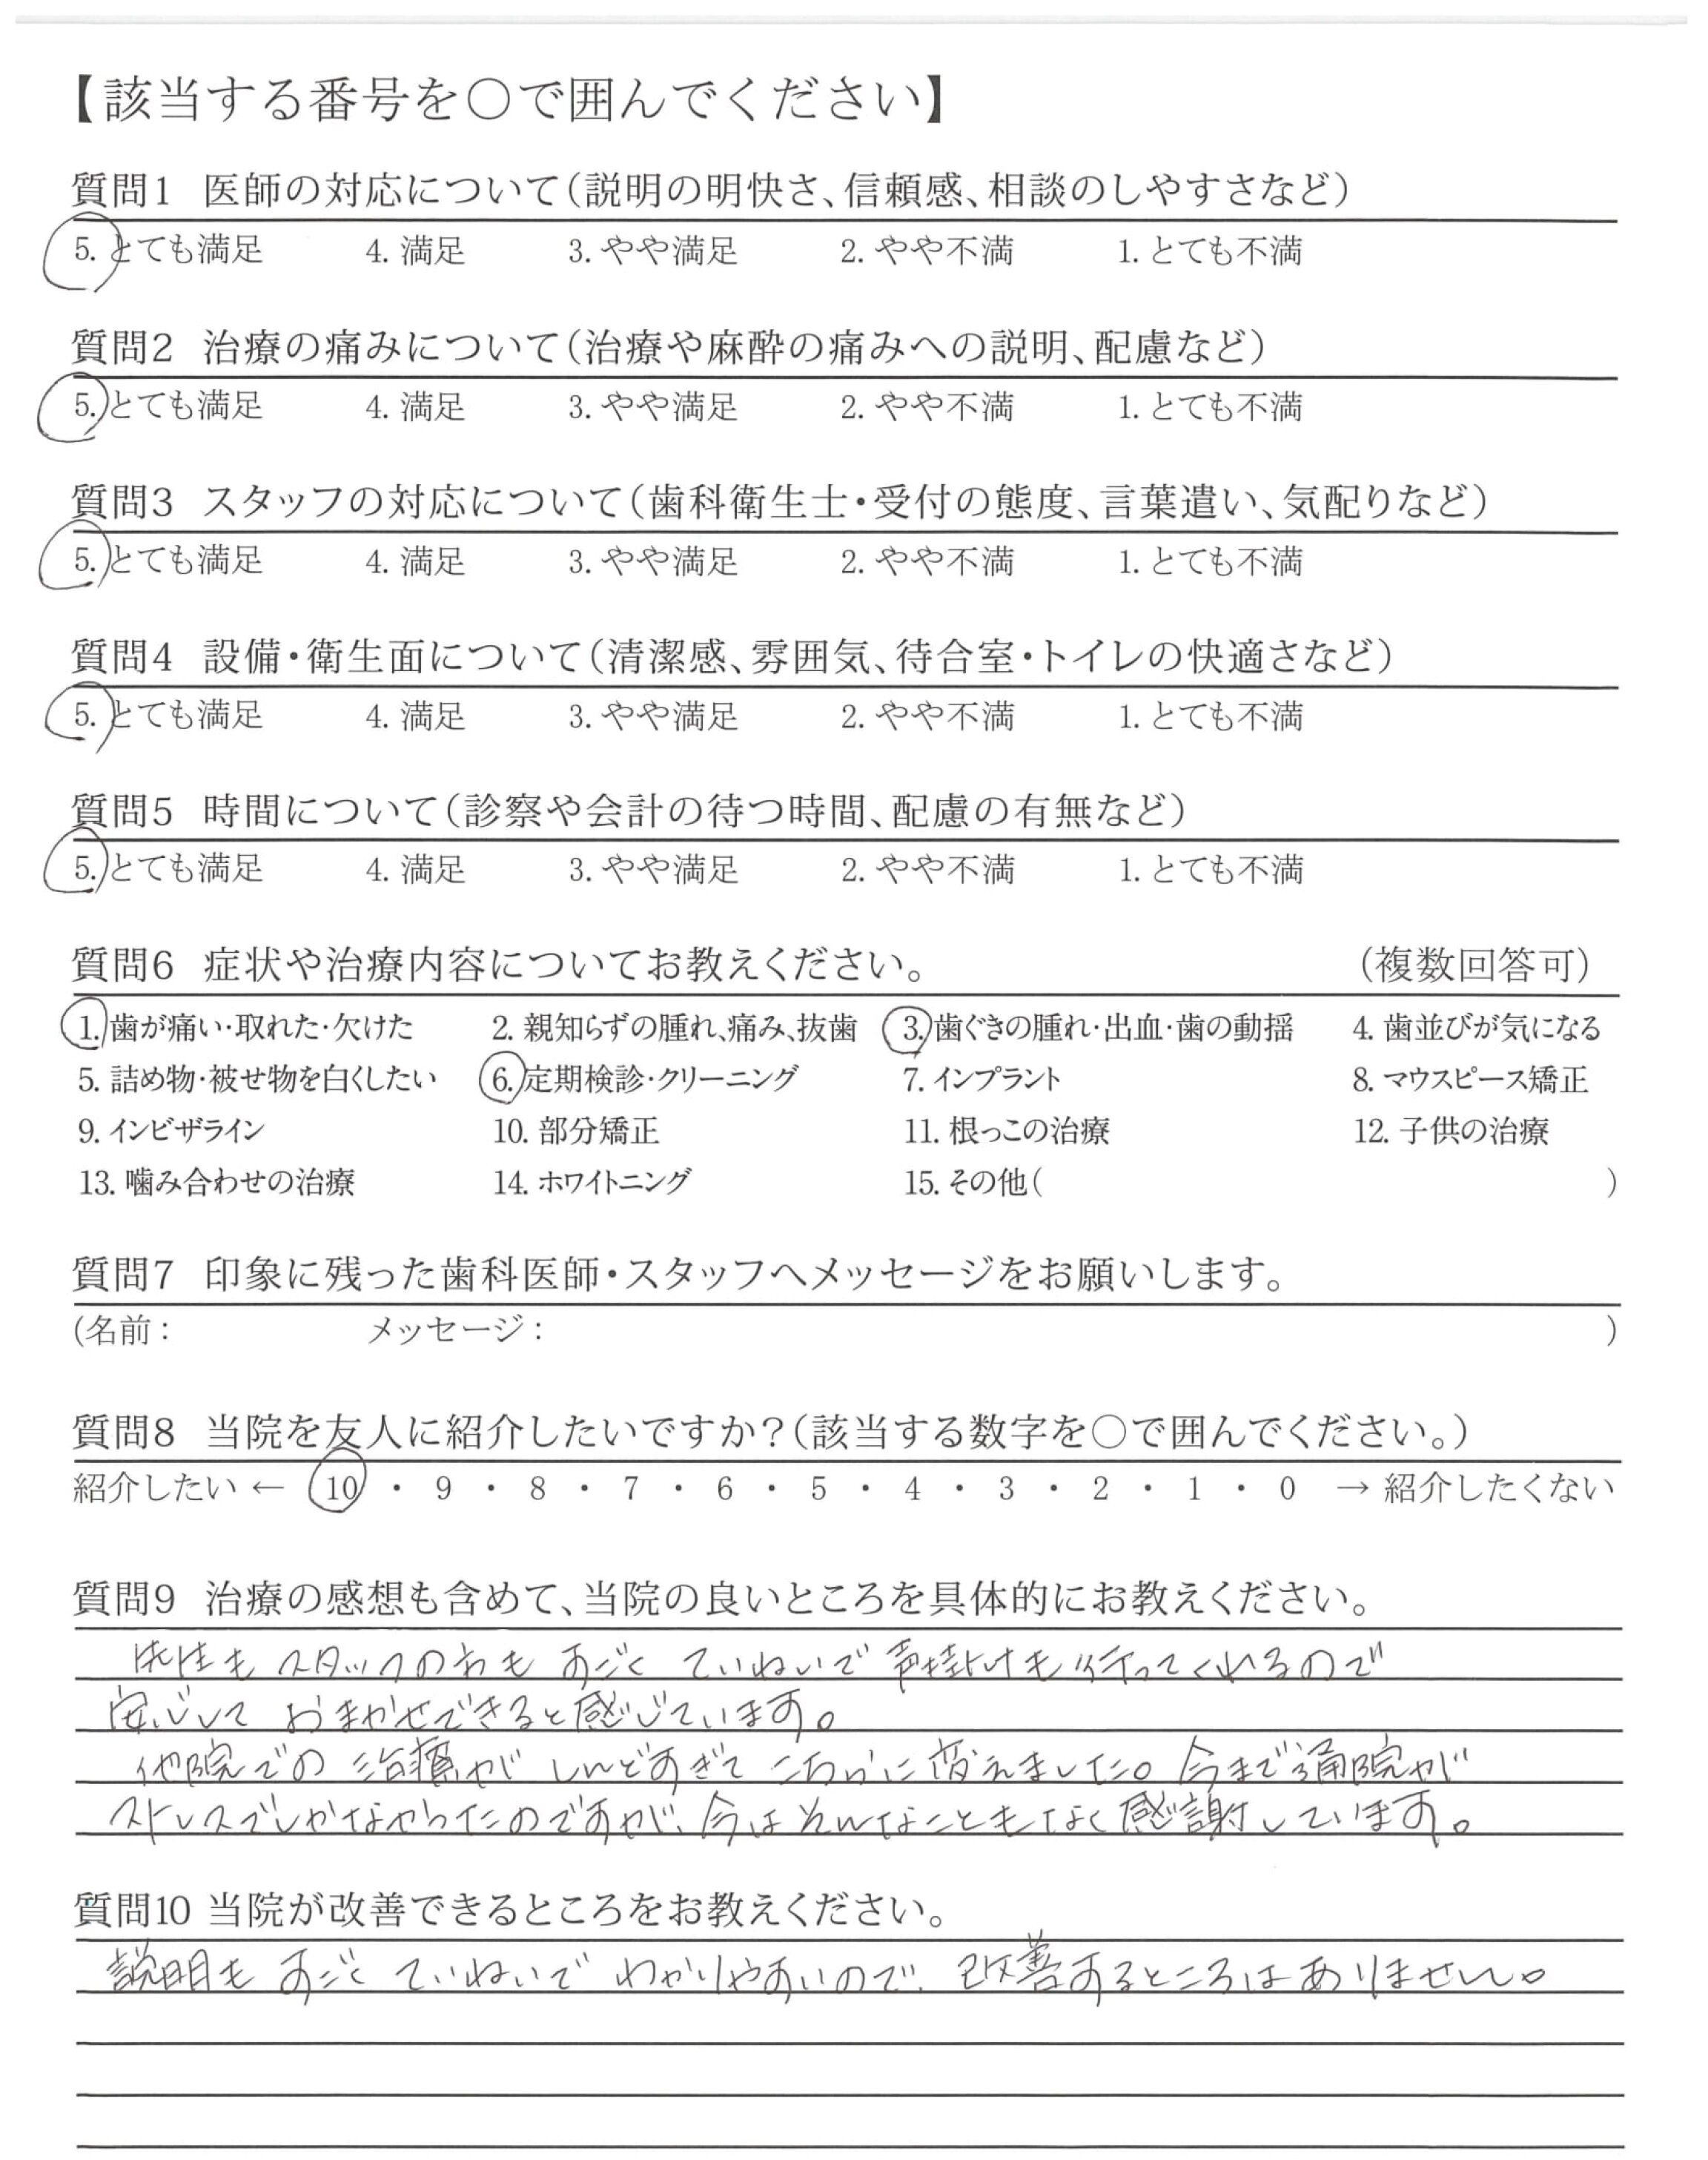 【該当する番号を○で囲んでください】
質問1 医師の対応について(説明の明快さ、信頼感、相談のしやすさなど)
5. とても満足 4. 満足 3. やや満足 2. やや不満 1. とても不満
質問2 治療の痛みについて(治療や麻酔の痛みへの説明、配慮など)
5. とても満足 4. 満足 3. やや満足 2. やや不満 1. とても不満
質問3 スタッフの対応について(歯科衛生士・受付の態度、言葉遣い、気配りなど)
5. とても満足 4. 満足 3. やや満足 2. やや不満 1. とても不満
質問4 設備・衛生面について(清潔感、雰囲気、待合室・トイレの快適さなど)
5. とても満足 4. 満足 3. やや満足 2. やや不満 1. とても不満
質問5 時間について(診察や会計の待つ時間、配慮の有無など)
5. とても満足 4. 満足 3. やや満足 2. やや不満 1. とても不満
質問6 症状や治療内容についてお教えください。 (複数回答可)
1. 歯が痛い・取れた・欠けた 2. 親知らずの腫れ、痛み、抜歯 3. 歯ぐきの腫れ・出血・歯の動揺 4. 歯並びが気になる
5. 詰め物・被せ物を白くしたい 6. 定期検診・クリーニング 7. インプラント 8. マウスピース矯正
9. インビザライン 10. 部分矯正 11. 根っこの治療 12. 子供の治療
13. 噛み合わせの治療 14. ホワイトニング 15. その他( )
質問7 印象に残った歯科医師・スタッフへメッセージをお願いします。
(名前: メッセージ: )
質問8 当院を友人に紹介したいですか?(該当する数字を○で囲んでください。)
紹介したい ← 10 ・ 9 ・ 8 ・ 7 ・ 6 ・ 5 ・ 4 ・ 3 ・ 2 ・ 1 ・ 0 → 紹介したくない
質問9 治療の感想も含めて、当院の良いところを具体的にお教えください。
先生もスタッフの方もすごくていねいで声掛けも行ってくれるので
安心しておまかせできると感じています。
他院での治療がしんどすぎてこちらに変えました。今まで通院が
ストレスでしかなかったのですが、今はそんなこともなく感謝しています。
質問10 当院が改善できるところをお教えください。
説明もすごくていねいでわかりやすいので、改善するところはありません。